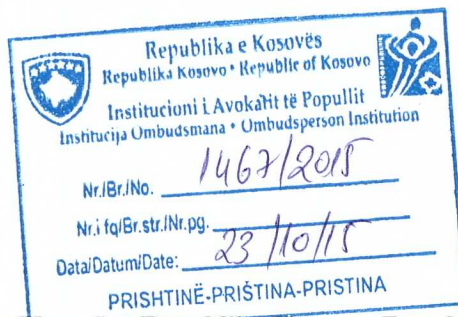 Republika e Kosovës
Republika Kosovo • Republic of Kosovo
Institucioni i Avokatit të Popullit
Institucija Ombudsmana • Ombudsperson Institution
Nr./Br./No. 1467/2015
Nr.i fq/Br.str./Nr.pg.
Data/Datum/Date: 23/10/15
PRISHTINË-PRIŠTINA-PRISTINA